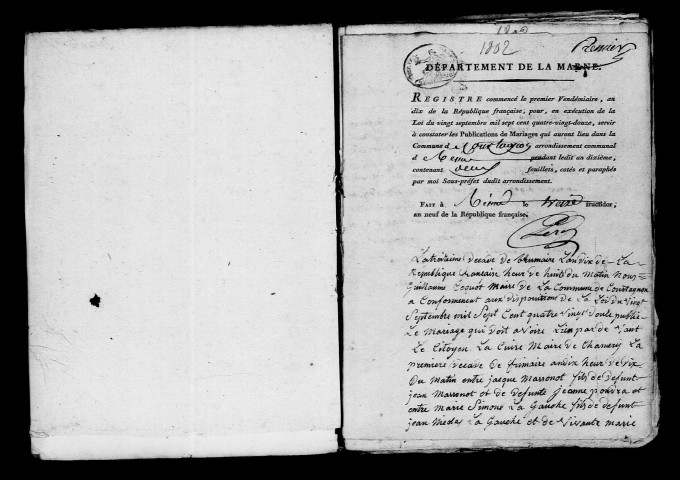 1802
1802
Premier
DÉPARTEMENT DE LA MARNE.
REGISTRE commencé le premier Vendémiaire, an
dix de la République française, pour, en exécution de la
Loi du vingt septembre mil sept cent quatre-vingt-douze, servir
à constater les Publications de Mariages qui auront lieu dans la
Commune de Courtagnon arrondissement communal
d pendant ledit an dixième,
contenant deux feuillets, cotés et paraphés
par moi Sous-préfet dudit arrondissement.
FAIT à le treize fructidor,
an neuf de la République française.
La troisime decade de brumaire Landix de La
Republique francaise heur de huit du matin nous
Guillaume Coquot Maire de La Commune de Courtagnon
a Conformement aux dispositions de La Loi du vingt
Septembre mil Sept Cent quatre vingt Douse publié
Le Mariage qui doit avoire Lieu par de vant
Le Citoyen La Cuire Maire de Chamery La
premiere decade de frimaire andix heur de dix
Du Matin entre jacque Marsonot fils de defunt
jean Marsonot et de defunte jeanne pondra et
entre marie Simone La Gauche fille de defunt
jean La Gauche et de marie